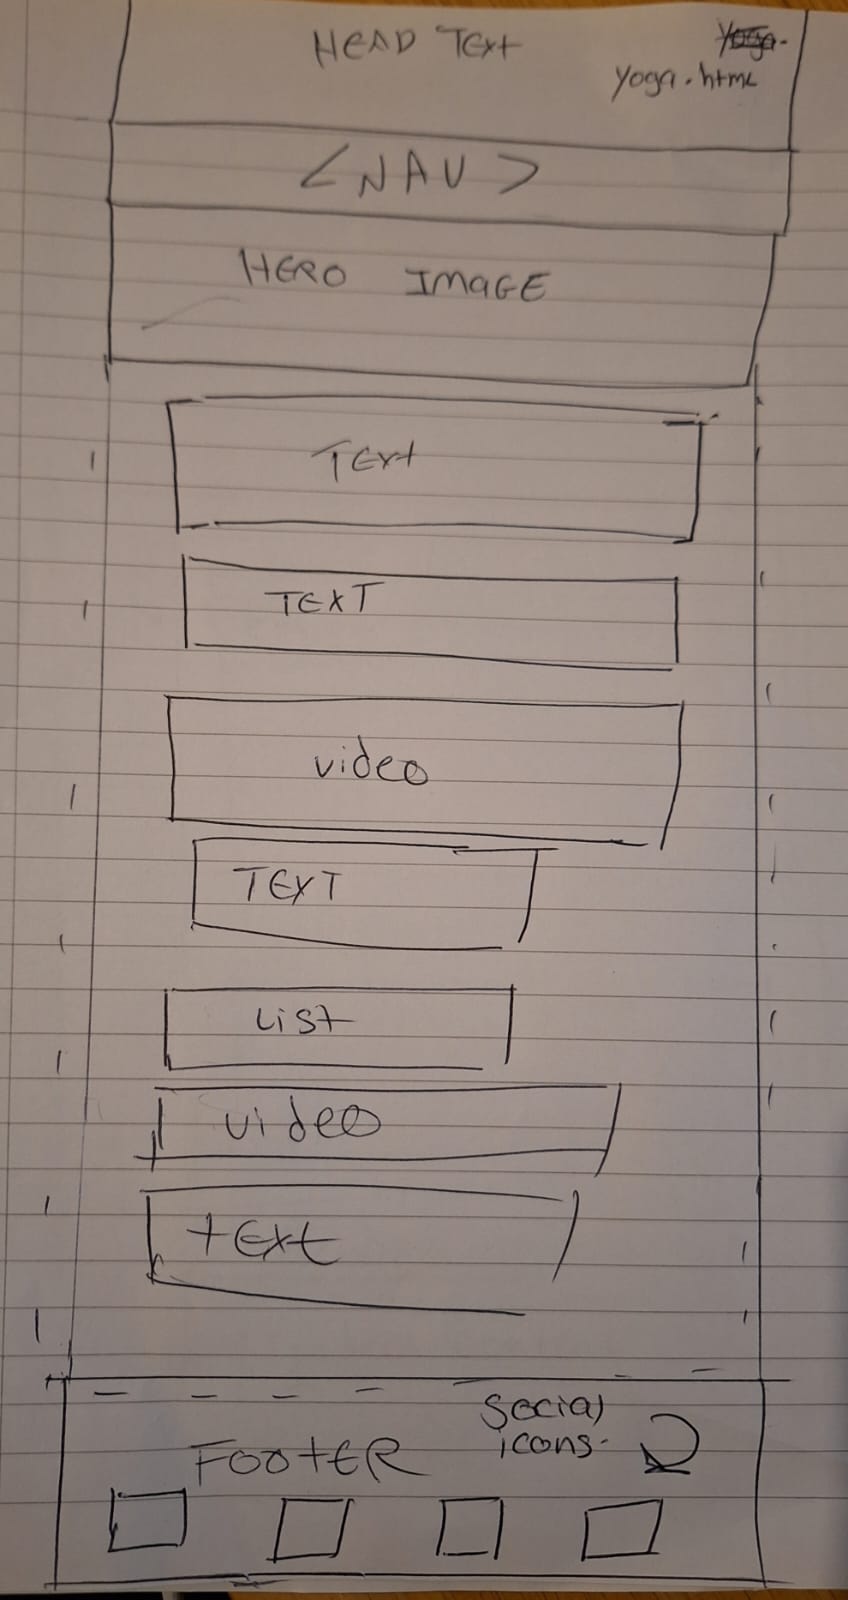 HEAD Text
Yoga.
yoga.html
<NAV>
HERO IMAGE
Text
TEXT
video
TEXT
List
video
text
Social
icons.
FOOtER